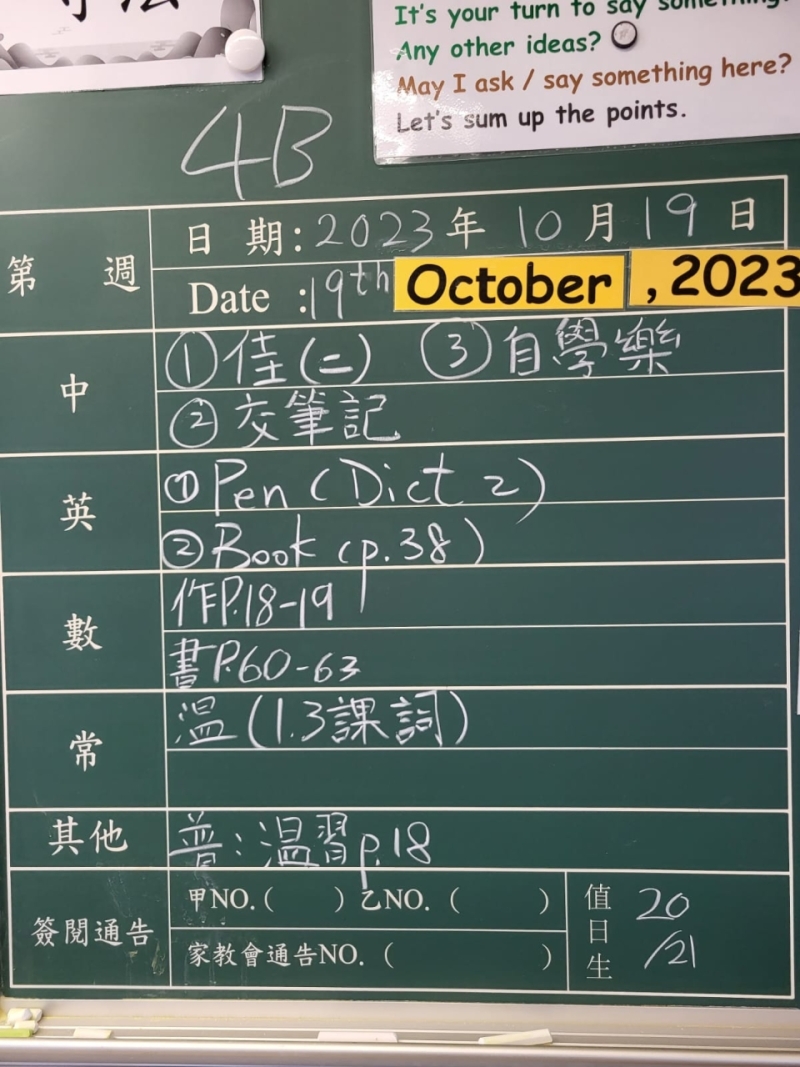 It's your turn to say something.
Any other ideas?
May I ask / say something here?
Let's sum up the points.
4B
第 週
日 期: 2023 年 10 月 19 日
Date : 19th October , 2023
中
① 佳(二) ③ 自學樂
② 交筆記
英
① Pen (Dict 2)
② Book (p.38)
數
作P.18-19
書P.60-63
常
溫(1.3課詞)
其他
普:溫習p.18
簽閱通告
甲NO.( ) 乙NO. ( )
家教會通告NO. ( )
值日生
20
/21